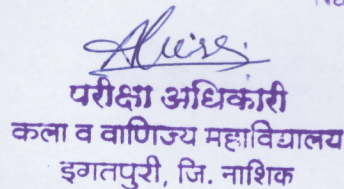 परीक्षा अधिकारी
कला व वाणिज्य महाविद्यालय
इगतपुरी, जि. नाशिक